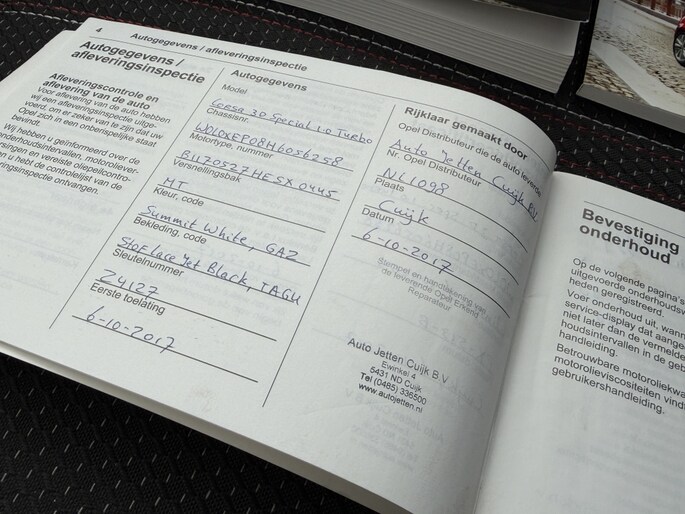 4
Autogegevens / afleveringsinspectie
Autogegevens /
afleveringsinspectie
Afleveringscontrole en
aflevering van de auto
Voor aflevering van de auto hebben
wij een afleveringsinspectie uitge-
voerd, om er zeker van te zijn dat uw
Opel zich in een onberispelijke staat
bevindt.
Wij hebben u geïnformeerd over de
onderhoudsintervallen, motoroliever-
versingen en vereiste oliepeilcontro-
en u hebt de controlelijst van de
ringsinspectie ontvangen.
Autogegevens
Model
Corsa 3.0 Special 1.0 Turbo
Chassisnr.
W0L0XEP08H6056258
Motortype, nummer
B1170527HESX0445
Versnellingsbak
MT
Kleur, code
Summit White, GAZ
Bekleding, code
Jet Black, TAGU
Sleutelnummer
Z4127
Eerste toelating
6-10-2017
Rijklaar gemaakt door
Opel Distributeur die de auto leverde
Auto Jetten Cuijk B.V.
Nr. Opel Distributeur
NL1098
Plaats
Cuijk
Datum
6-10-2017
Stempel en handtekening van
de leverende Opel Erkend
Reparateur
Auto Jetten Cuijk B.V.
Ewinkel 4
5431 ND Cuijk
Tel (0485) 336500
www.autojetten.nl
Bevestiging
onderhoud
Op de volgende pagina's
uitgevoerde onderhoudsw
heden geregistreerd.
Voer onderhoud uit, wann
service-display dat aange
niet later dan de vermelde
houdsintervallen in de geb
handleiding.
Betrouwbare motoroliekwa
motorolieviscositeiten vindt
gebruikershandleiding.